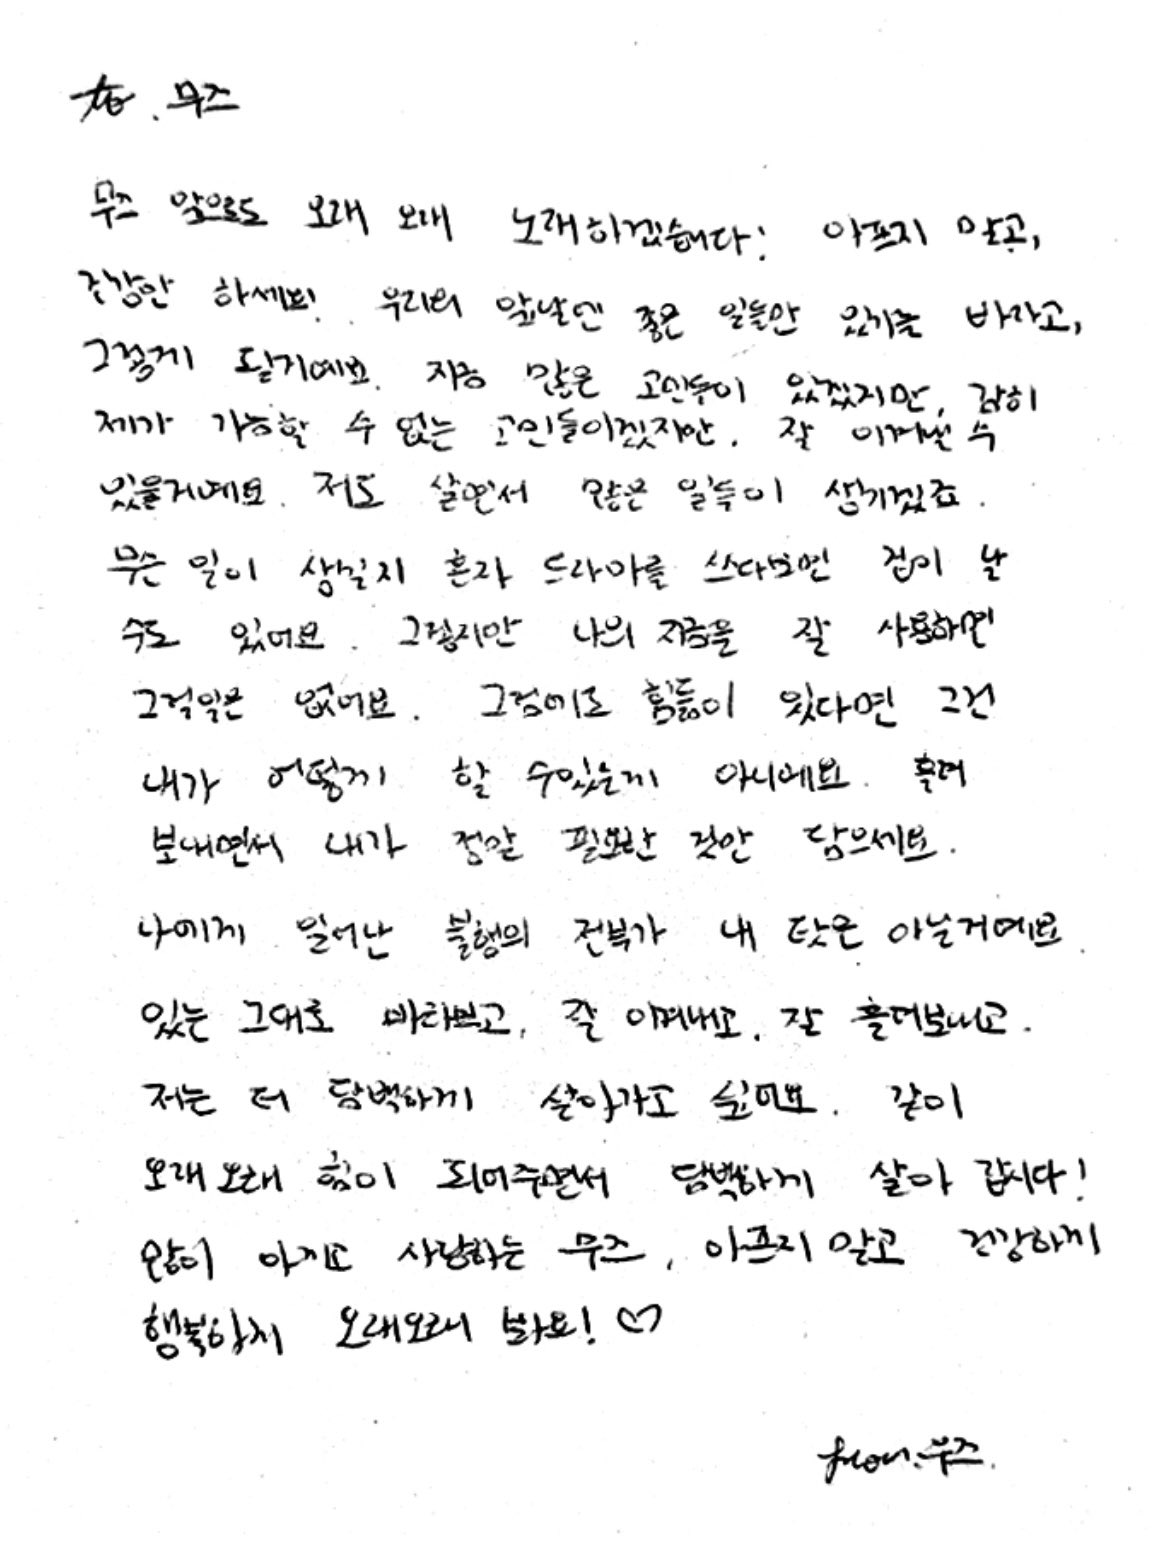 to. 무즈
무즈 앞으로도 오래 오래 노래하겠습니다! 아프지 말고,
건강만 하세요! 우리의 앞날엔 좋은 일들만 있기를 바라고,
그렇게 될거예요. 지금 많은 고민들이 있겠지만, 감히
제가 가늠할 수 없는 고민들이겠지만. 잘 이겨낼 수
있을거예요. 저도 살면서 많은 일들이 생기겠죠.
무슨 일이 생길지 혼자 드라마를 쓰다보면 겁이 날
수도 있어요. 그렇지만 나의 지금을 잘 사용하면
그럴일은 없어요. 그럼에도 힘듦이 있다면 그건
내가 어떻게 할 수있는게 아니예요. 흘려
보내면서 내가 정말 필요한 것만 담으세요.
나에게 일어난 불행의 전부가 내 탓은 아닐거예요.
있는 그대로 바라보고, 잘 이겨내고. 잘 흘려보내고.
저는 더 담백하게 살아가고 싶어요. 같이
오래오래 힘이 되어주면서 담백하게 살아 갑시다!
많이 아끼고 사랑하는 무즈, 아프지 말고 건강하게
행복하게 오래오래 봐요! ♡
from.무즈.